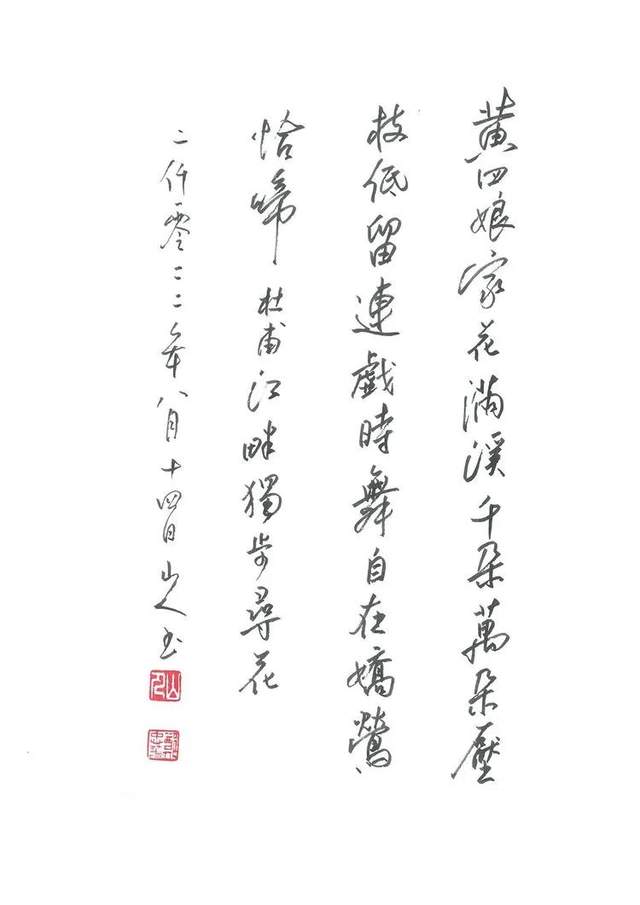 黄四娘家花滿溪千朵萬朵壓
枝低留連戲時舞自在嬌鶯
恰啼 杜甫江畔獨步尋花
二仟零二二年八月十四日山人书
山人